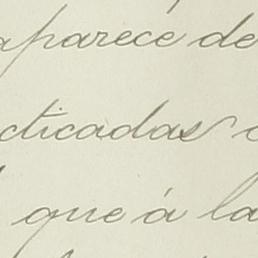 aparece de
cticadas
que á la